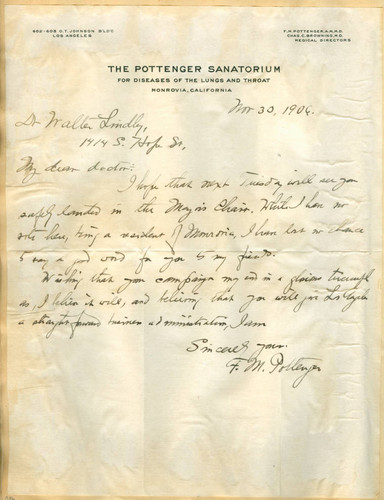 602-605 O.T. JOHNSON BLDG
LOS ANGELES
F. M. POTTENGER, A.M. M.D.
CHAS. C. BROWNING, M.D.
MEDICAL DIRECTORS
THE POTTENGER SANATORIUM
FOR DISEASES OF THE LUNGS AND THROAT
MONROVIA, CALIFORNIA
Nov 30, 1906.
Dr Walter Lindley,
1414 S. Hope St,
My dear doctor:
I hope that next Tuesday will see you
safely landed in the Mayors Chair. While I have no
vote here, being a resident of Monrovia, I have lost no chance
to say a good word for you to my friends.
Wishing that your campaign may end in a glorious triumph
as I believe it will, and believing that you will give Los Angeles
a straight forward business administration, I am
Sincerely yours.
F. M. Pottenger